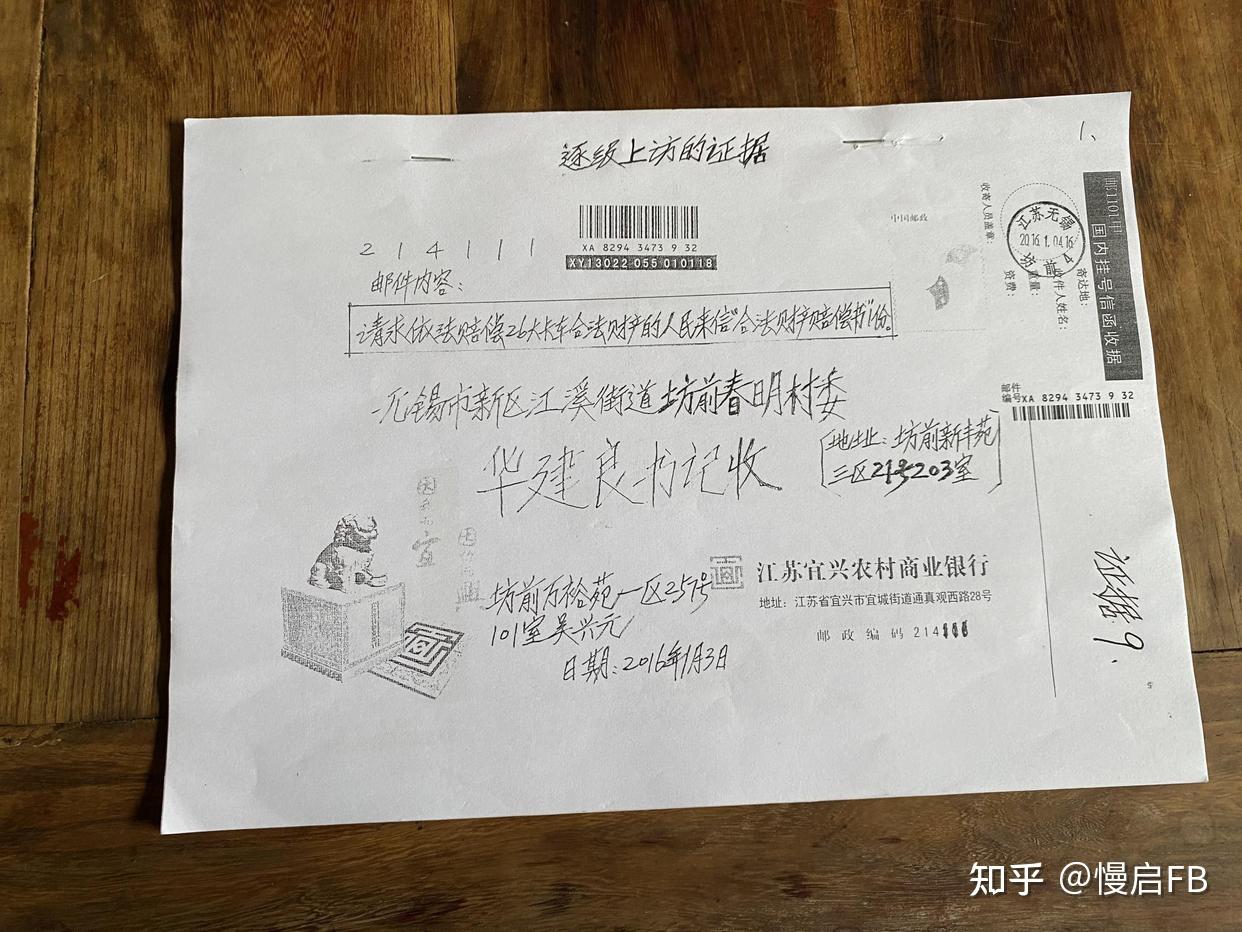 逐级上访的证据
1、
XA 8294 3473 9 32
XY13022 055 010118
214111
邮件内容：
请求依法赔偿26大卡车合法财产的人民来信“合法财产赔偿书”1份。
无锡市新区江溪街道坊前春明村委
华建良书记收
(地址：坊前新丰苑
三区21号203室)
坊前万裕苑一区257号
101室吴兴元
日期：2016年1月3日
江苏宜兴农村商业银行
地址：江苏省宜兴市宜城街道通真观西路28号
邮政编码 214
中国邮政
邮1101甲
国内挂号信函收据
收寄人员盖章：
江苏无锡
2016.1.04.16
寄达地：
收件人姓名：
重量：
资费：
邮件
编号XA 8294 3473 9 32
证据9.
知乎 @慢启FB